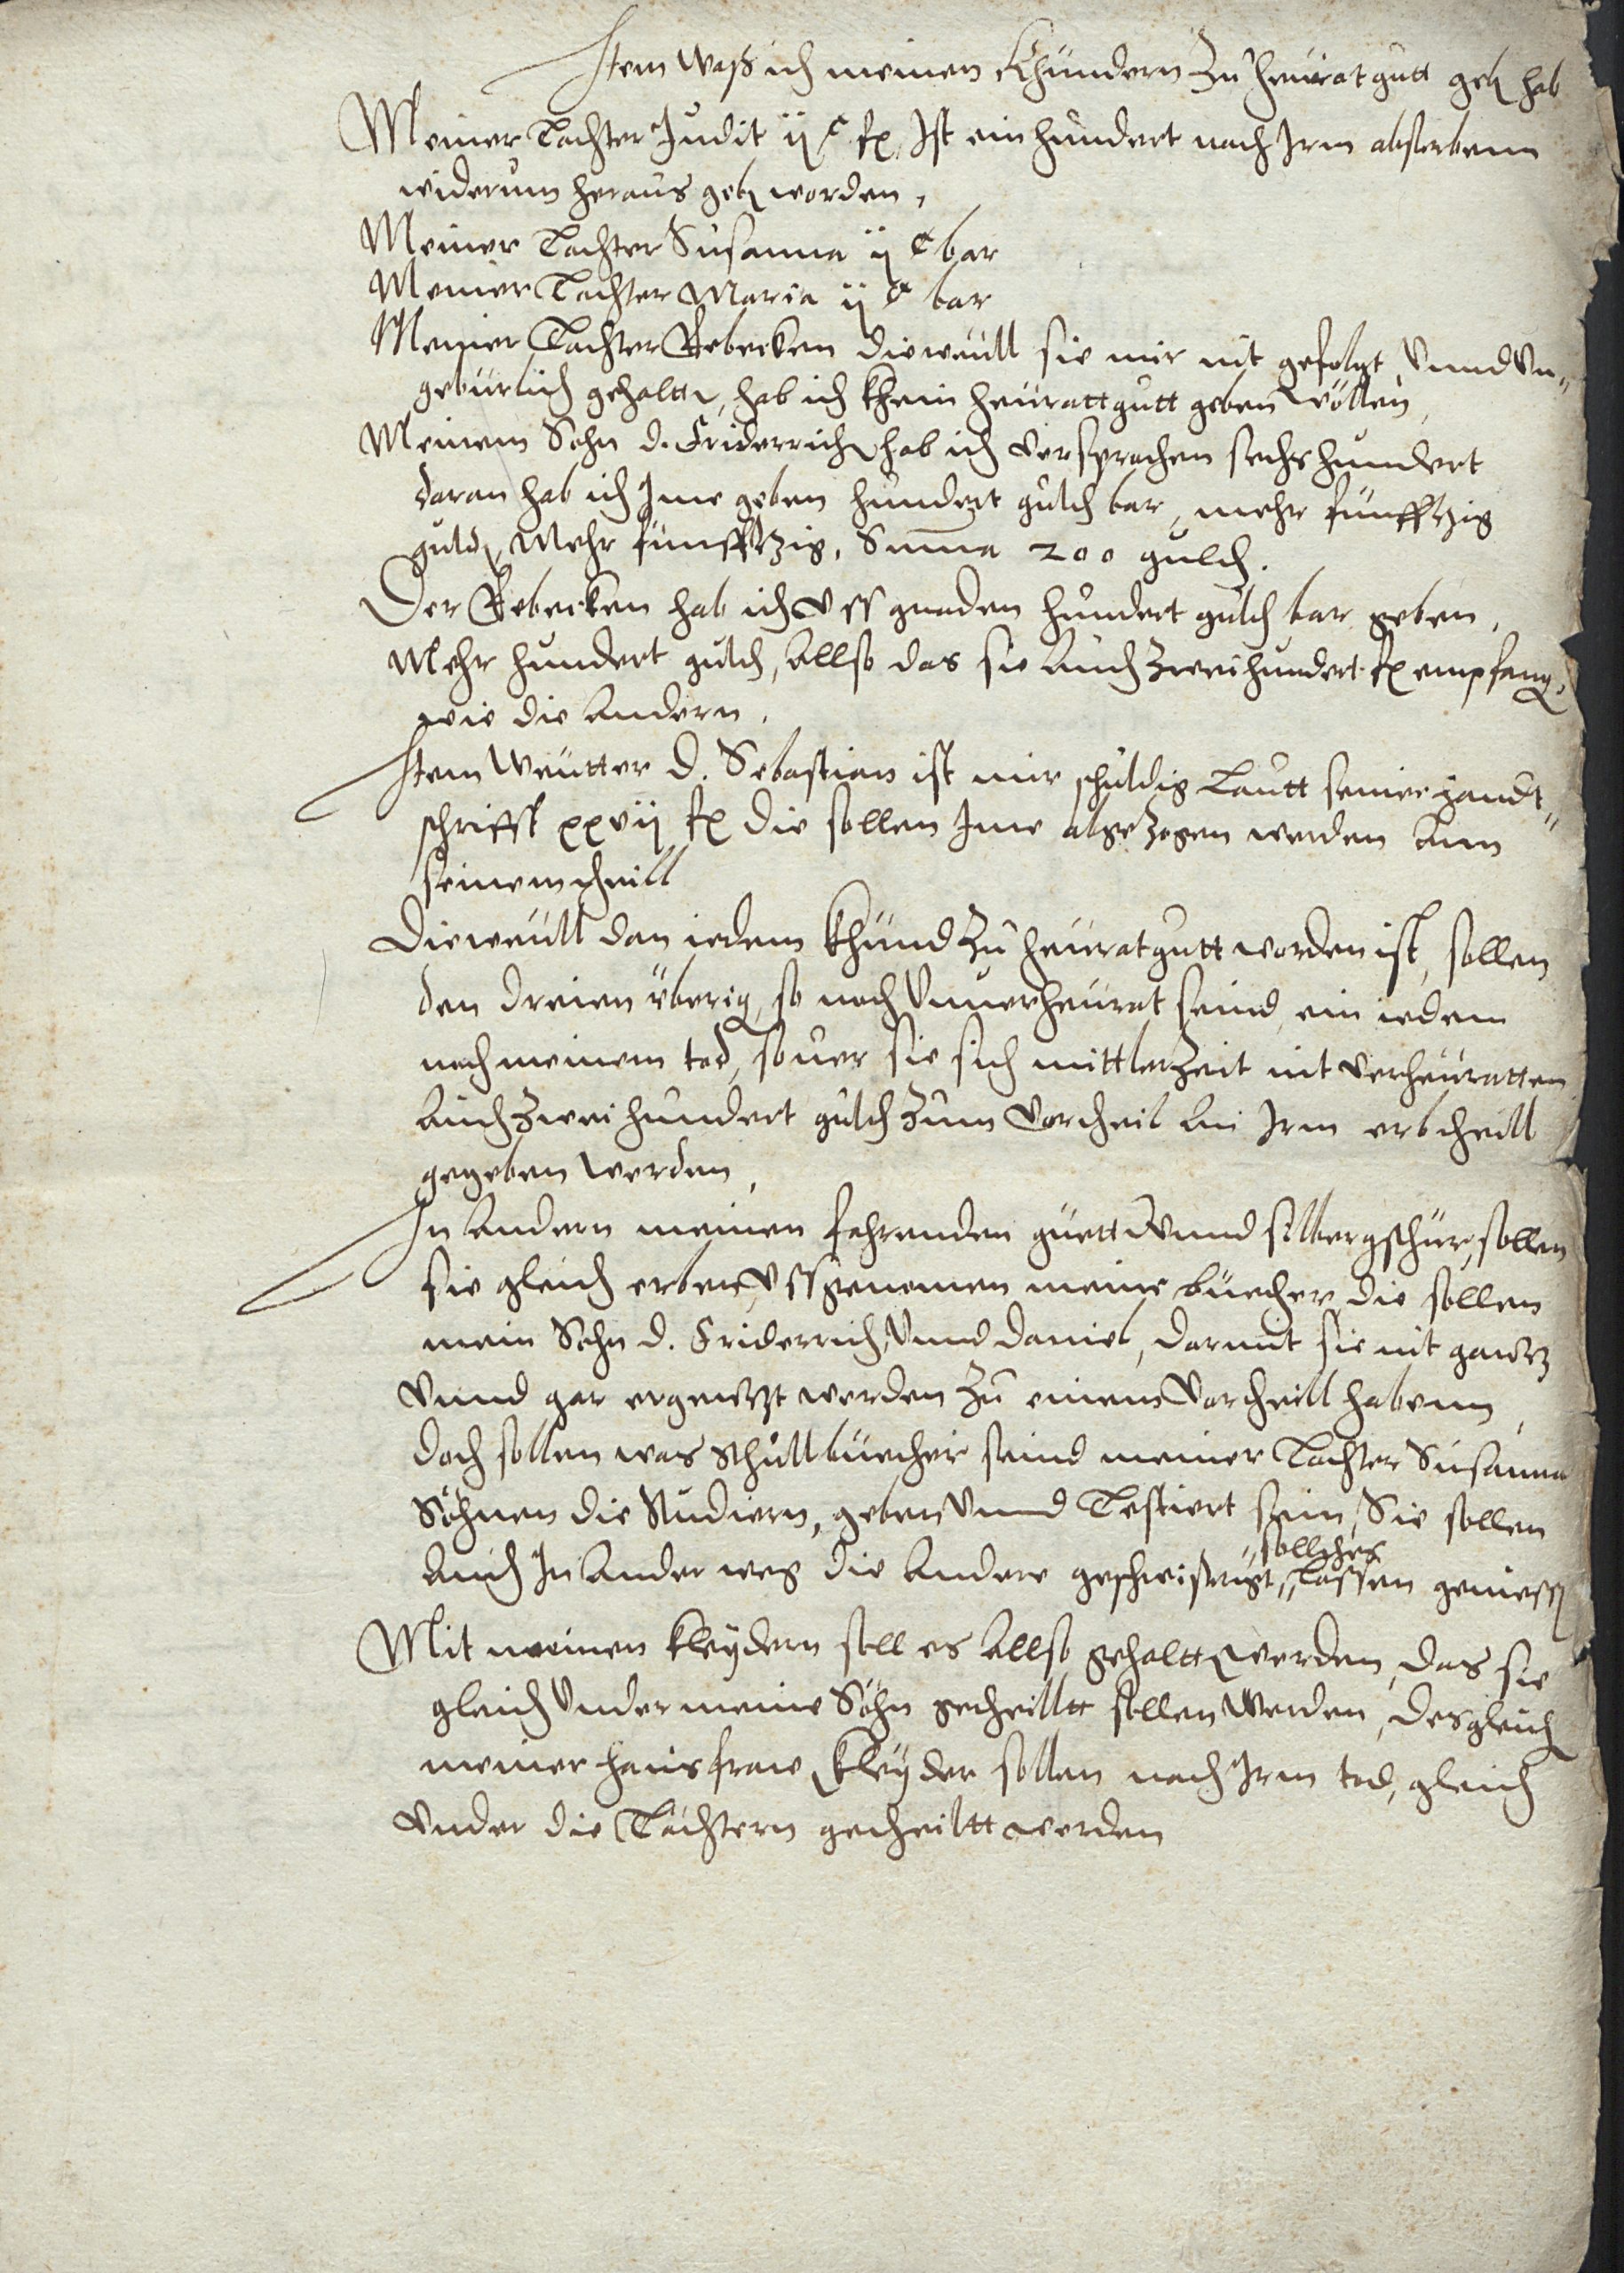 Item waß ich meinen Khündern zu heürat gutt geb hab
Meiner Tochter Judit ij c fl, Ist ein hundert nach Irm absterbenn
widerum heraus geb worden,
Meiner Tochter Susanna ij c bar
Meiner Tochter Maria ij c bar
Meiner Tochter Rebecken dieweüll sie mir nit gefolgt vnnd vn„
gebürlich gehaltt, hab ich khein heürattgutt geben wöllen,
Meinem Sohn d. Friderrich hab ich versprochen sechs hundert
daran hab ich Ime geben hundert guld bar, mehr fünfftzig
guld, Mehr fünfftzig, Suma 200 guld.
Der Rebecken hab ich vss gnaden hundert guld bar geben,
Mehr hundert guld, Allso das sie auch zwei hundert fl empfang,
wie die andern,
Item weütter d. Sebastian ist mir schuldig Lautt seiner handt„
schrifft xxvij fl die sollen Ime abgezogen werden ann
seinem theill
Dieweüll dan iedem khünd zu heürat gutt worden ist, sollen
den dreien überig, so noch vnuerheürat seind, ein iedem
nach meinem tod, so uer sie sich mittler zeit nit verheüratten
auch zwei hundert guld zum vortheil an Irm erbtheill
gegeben werden,
In andern meinen fahrenden güett vnnd silbergschür, sollen
sie gleich erben, vssgenomen meine büecher, die sollen
mein Sohn d. Friderrich, vnnd daniel, darmit sie nit gantz
vnnd gar ergentzt werden zu einem vortheill habenn,
doch sollen was schullbüecher seind meiner Tochter Susanna
Söhnen die studiern, geben vnnd Testiert sein, Sie sollen
sollches
auch In ander weg die andere geschwistrigt„ Lassen geniess
Mit meinen kleydern soll es allso gehaltt werden, das sie
gleich vnder meine Söhn getheillt sollen werden, desgleich
meiner hausfraw kleyder sollen nach Irm tod, gleich
vnder die Töchtern getheiltt werden